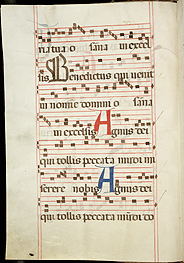 na tura o sana in excel
sis Benedictus qui venit
in nomine domini o sana
in excelsis Agnus dei
qui tollis peccata mundi mi
serere nobis Agnus dei
qui tollis peccata mundi do